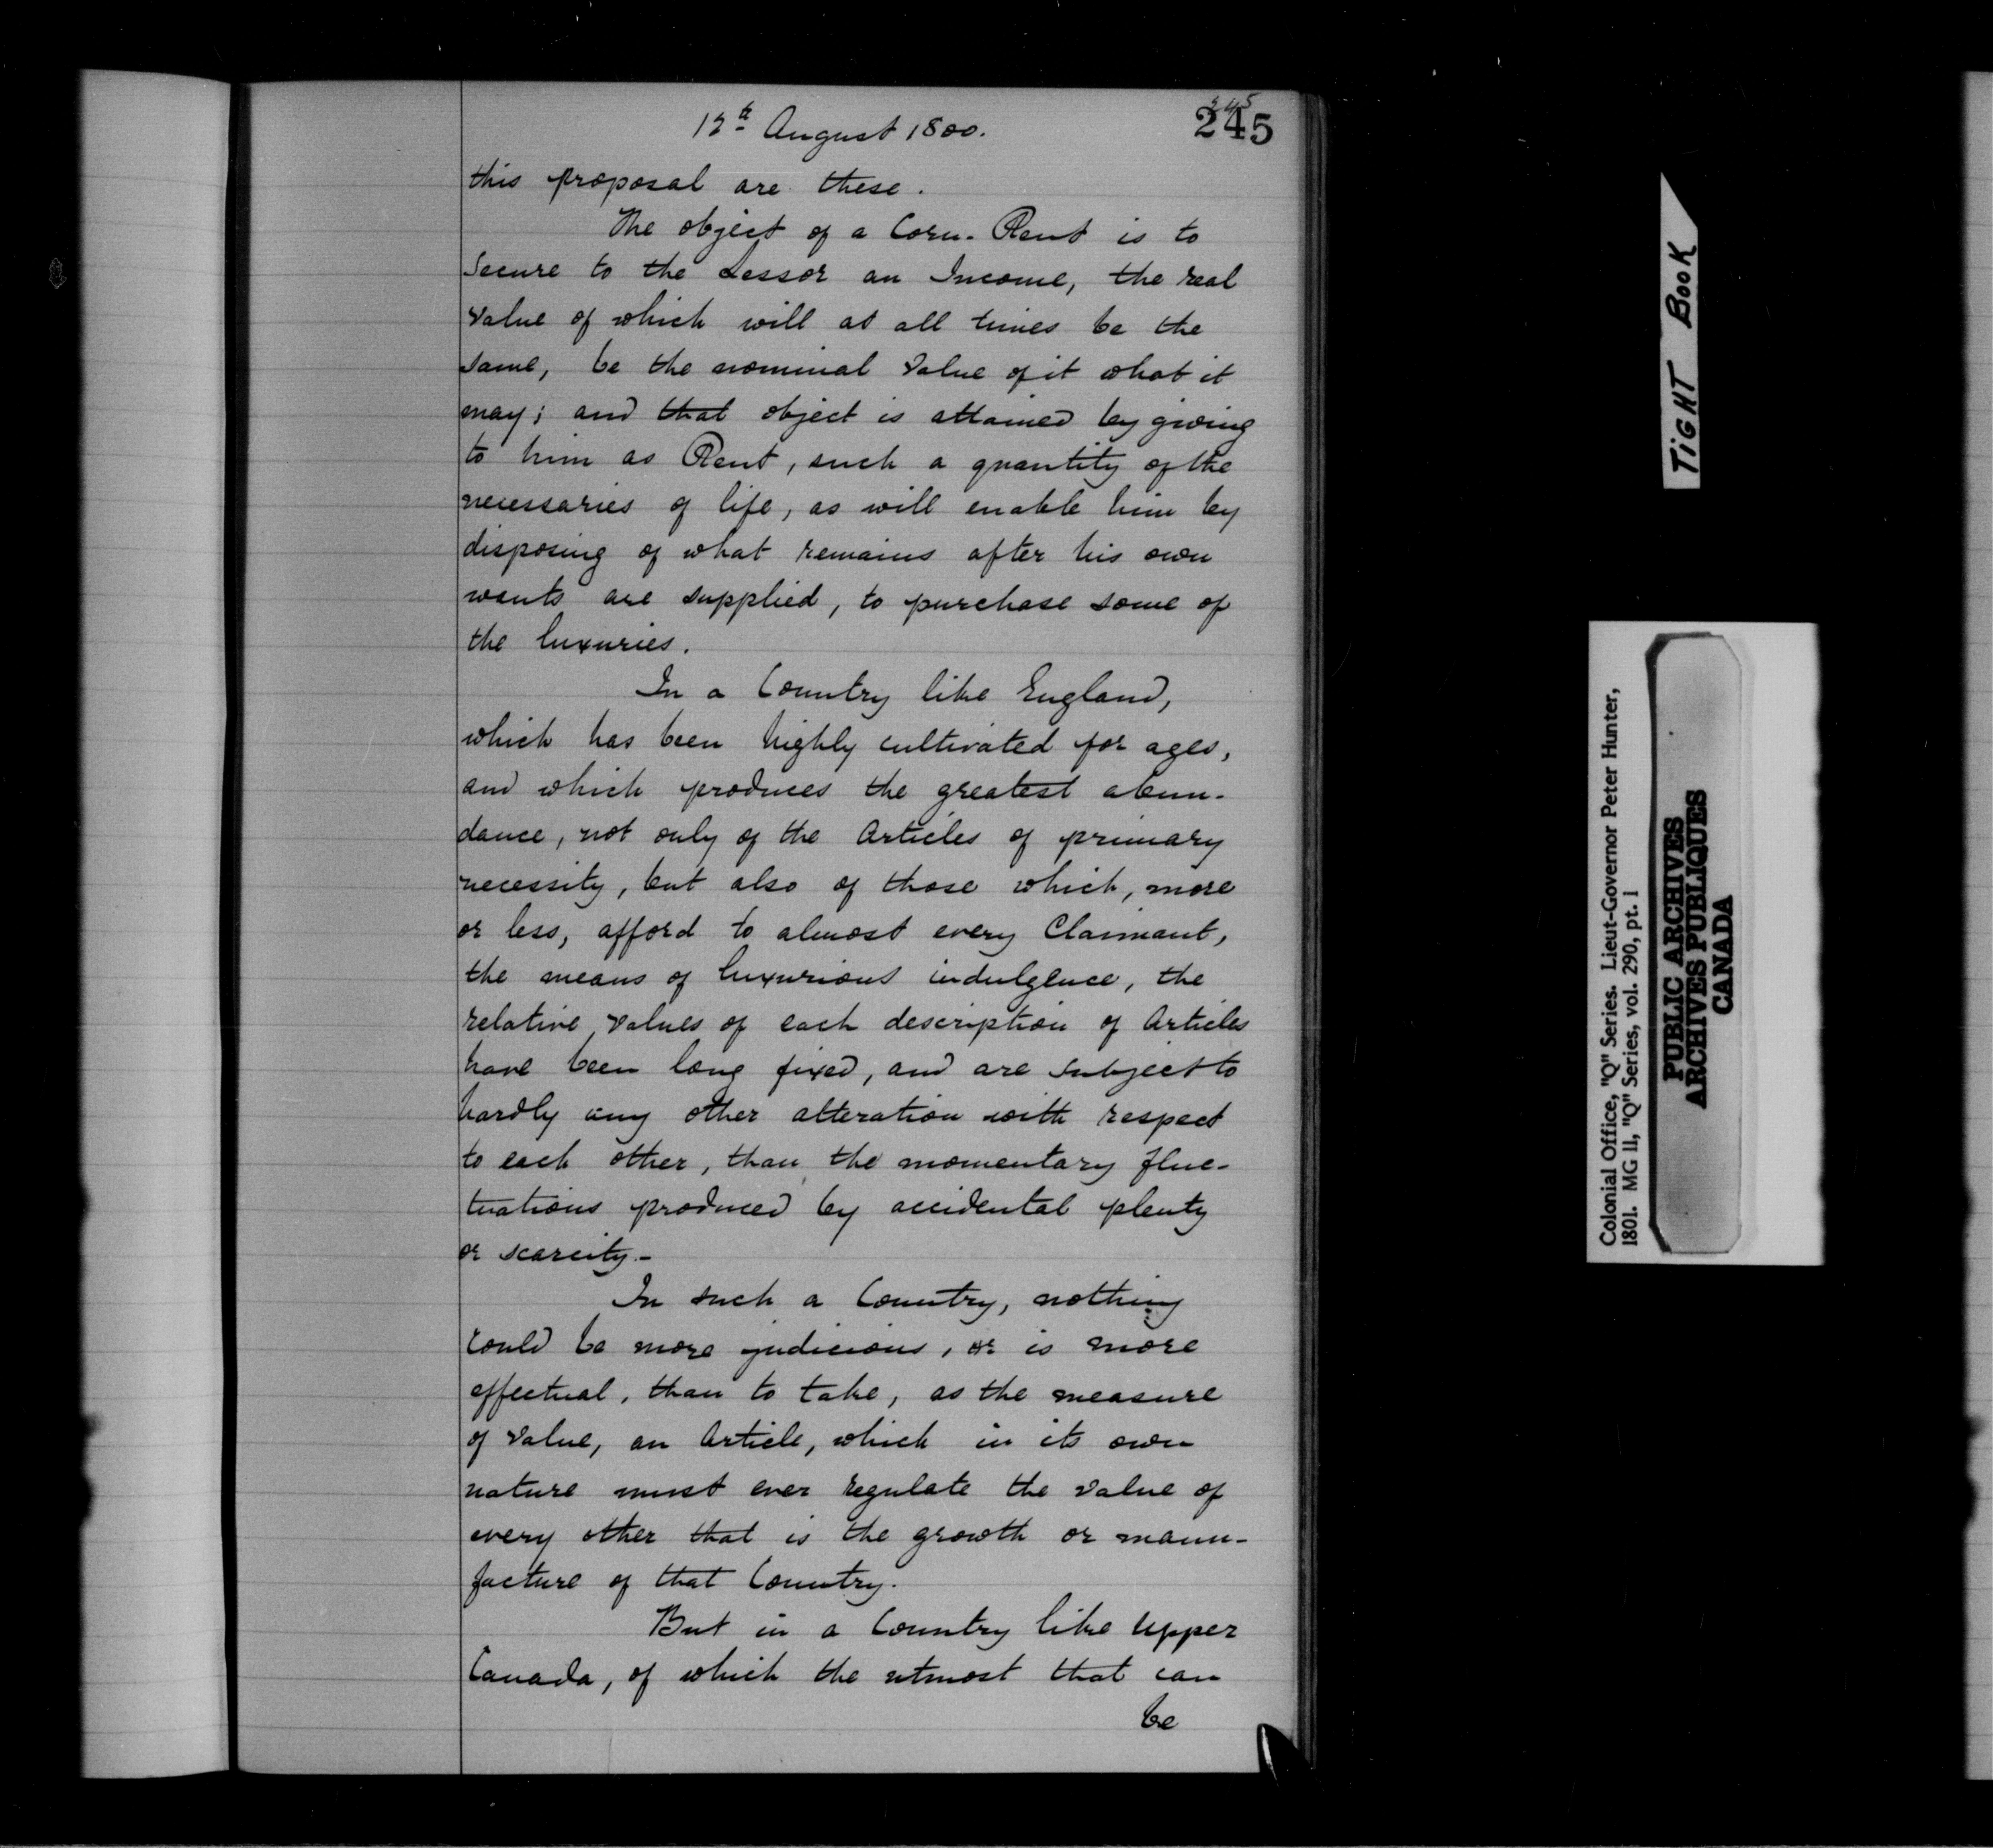 245
245
12th August 1800.
this proposal are these.
The object of a Corn-Rent is to
secure to the Lessor an Income, the real
value of which will at all times be the
same, be the nominal value of it what it
may; and that object is attained by giving
to him as Rent, such a quantity of the
necessaries of life, as will enable him by
disposing of what remains after his own
wants are supplied, to purchase some of
the luxuries.
In a Country like England,
which has been highly cultivated for ages,
and which produces the greatest abun-
dance, not only of the Articles of primary
necessity, but also of those which, more
or less, afford to almost every Claimant,
the means of luxurious indulgence, the
relative values of each description of Articles
have been long fixed, and are subject to
hardly any other alteration with respect
to each other, than the momentary fluc-
tuations produced by accidental plenty
or scarcity.-
In such a Country, nothing
could be more judicious, or is more
effectual, than to take, as the measure
of value, an Article, which in its own
nature must ever regulate the value of
every other that is the growth or manu-
facture of that Country.
But in a Country like Upper
Canada, of which the utmost that can
be
TIGHT BOOK
Colonial Office, "Q" Series. Lieut-Governor Peter Hunter,
1801. MG 11, "Q" Series, vol. 290, pt. 1
PUBLIC ARCHIVES
ARCHIVES PUBLIQUES
CANADA